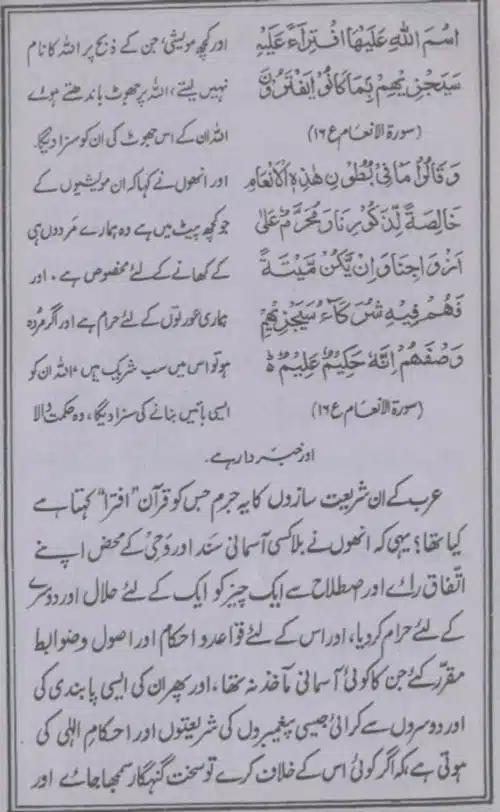 اسْمَ اللهِ عَلَيْهَا افْتِرَاءً عَلَيْهِ
سَيَجْزِيْهِمْ بِمَا كَانُوْا يَفْتَرُوْنَ
(سورة الانعام ع ۱۶)
وَقَالُوْا مَا فِيْ بُطُوْنِ هٰذِهِ الْاَنْعَامِ
خَالِصَةٌ لِّذُكُوْرِنَا وَمُحَرَّمٌ عَلٰى
اَزْوَاجِنَا وَاِنْ يَّكُنْ مَّيْتَةً
فَهُمْ فِيْهِ شُرَكَآءُ سَيَجْزِيْهِمْ
وَصْفَهُمْ اِنَّهٗ حَكِيْمٌ عَلِيْمٌ ۵
(سورة الانعام ع ۱۶)
اور کچھ مویشی، جن کے ذبح پر اللہ کا نام
نہیں لیتے، اللہ پر جھوٹ باندھتے ہوئے
اللہ ان کے اس جھوٹ کی ان کو سزا دیگا۔
اور انھوں نے کہا کہ ان مویشیوں کے
جو کچھ پیٹ میں ہے وہ ہمارے مَردوں ہی
کے کھانے کے لئے مخصوص ہے، اور
ہماری عورتوں کے لئے حرام ہے اور اگر مُردہ
ہو تو اس میں سب شریک ہیں، اللہ ان کو
ایسی باتیں بنانے کی سزا دیگا، وہ حکمت والا
اور خبردار ہے۔
عرب کے ان شریعت سازوں کا یہ جرم جس کو قرآن "افترا" کہتا ہے
کیا تھا؟ یہی کہ انھوں نے بلا کسی آسمانی سَند اور وَحی کے محض اپنے
اتفاق رائے اور اصطلاح سے ایک چیز کو ایک کے لئے حلال اور دوسرے
کے لئے حرام کر دیا، اور اس کے لئے قواعد و احکام اور اصول و ضوابط
مقرر کئے جن کا کوئی آسمانی مأخذ نہ تھا، اور پھر ان کی ایسی پابندی کی
اور دوسروں سے کرائی جیسی پیغمبروں کی شریعتوں اور احکامِ الٰہی کی
ہوتی ہے، بلکہ اگر کوئی اس کے خلاف کرے تو سخت گنہگار سمجھا جائے اور